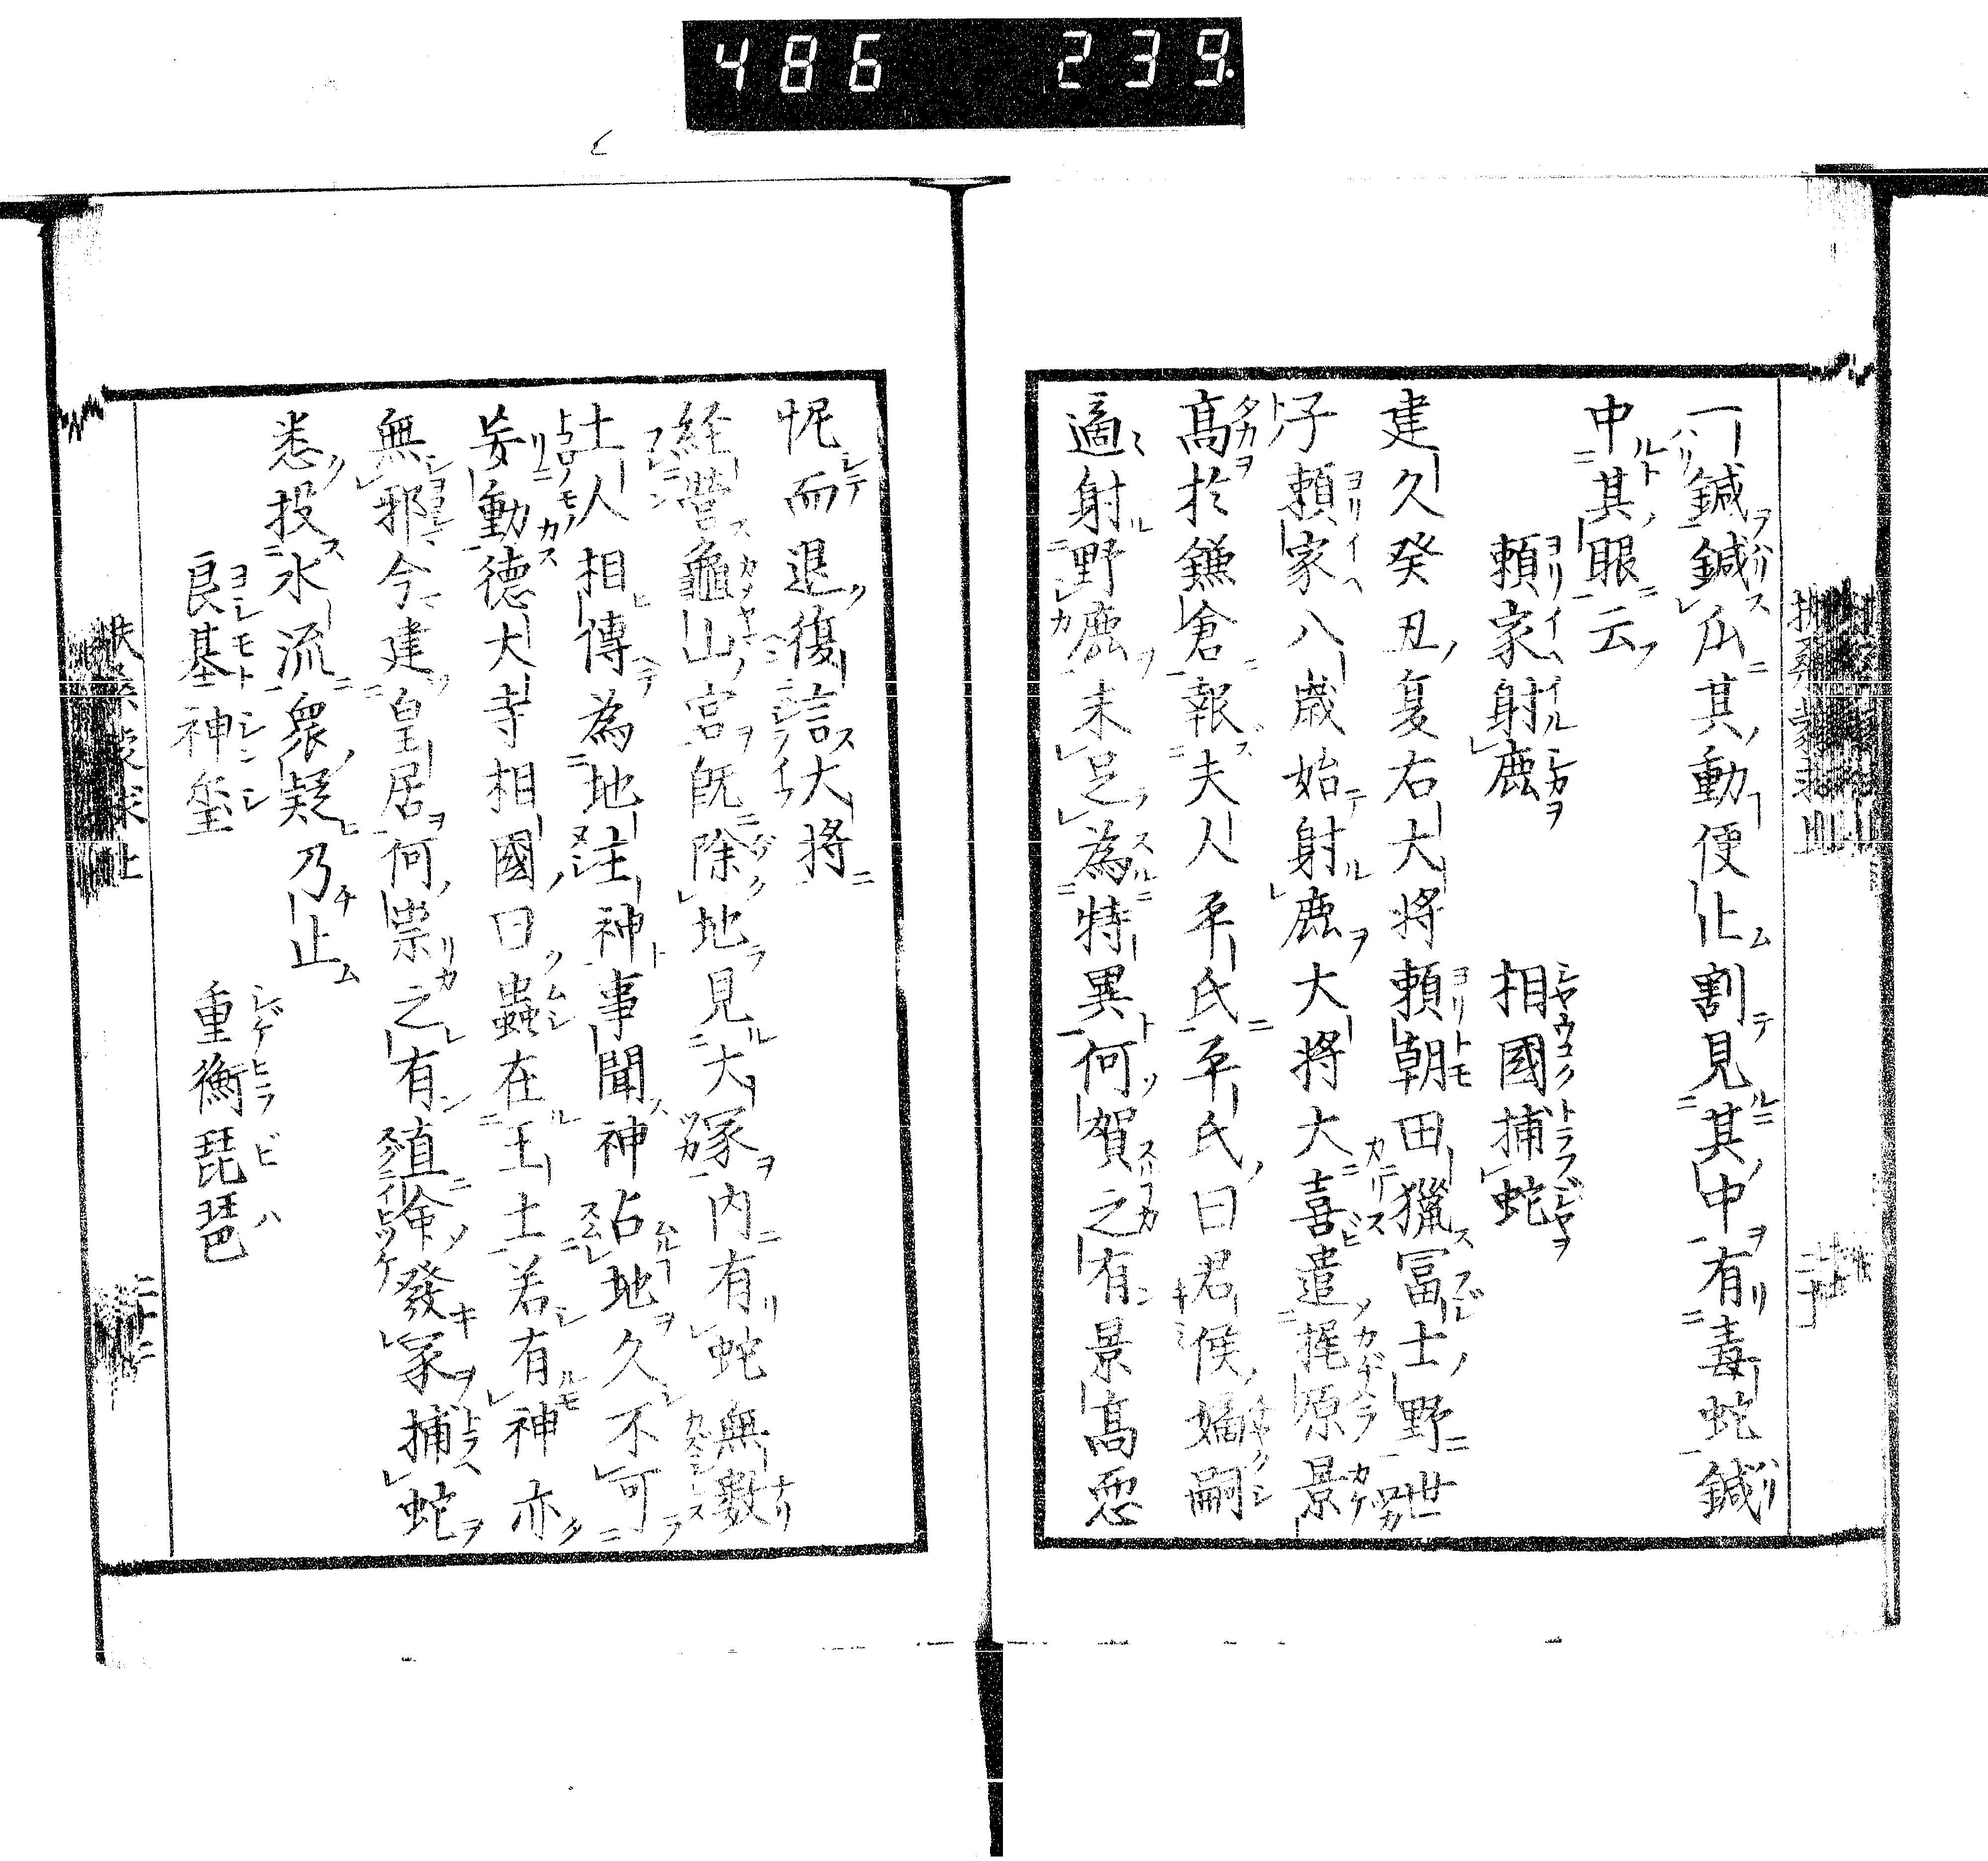 486 239
一鍼鍼瓜其動便止割見其中有毒蛇鍼
中其眼云
頼家射鹿 相國捕蛇
建久癸丑夏右大将頼朝田獵冨士野世
子頼家八歳始射鹿大将大喜遣梶原景
髙於鎌倉報夫人平氏平氏曰君侯嫡嗣
適射野鹿未足為特異何賀之有景髙恧
怩而退復言大将
経營龜山宮既除地見大塚内有蛇無數
土人相傳為地主神事聞神占地久不可
妄動德大寺相國曰蟲在王土若有神亦
無邪今建皇居何祟之有直命發冢捕蛇
悉投水流衆疑乃止
良基神璽 重衡琵琶
扶桑蒙求上 二十二